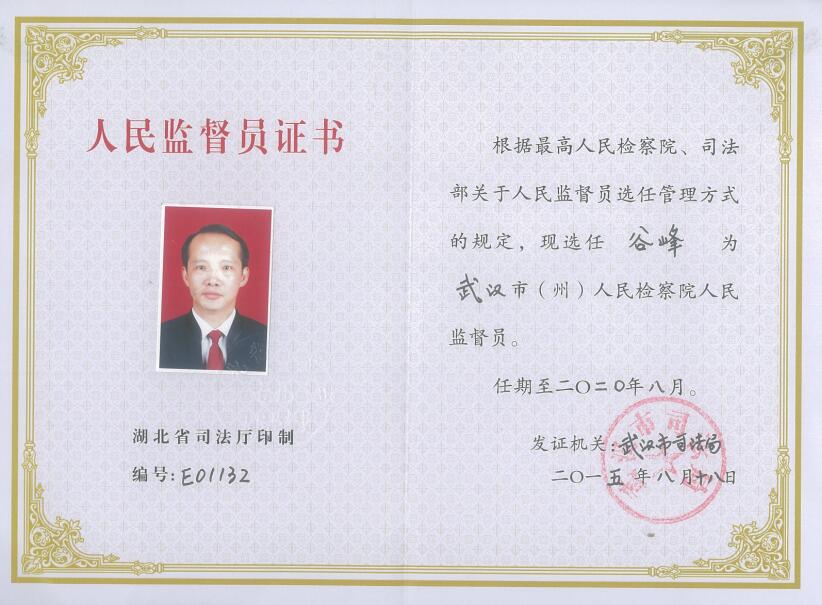 人民监督员证书
湖北省司法厅印制
编号:E01132
根据最高人民检察院、司法
部关于人民监督员选任管理方式
的规定，现选任 谷峰 为
武汉市（州）人民检察院人民
监督员。
任期至二〇二〇年八月。
发证机关:武汉市司法局
二〇一五年八月十八日
市司